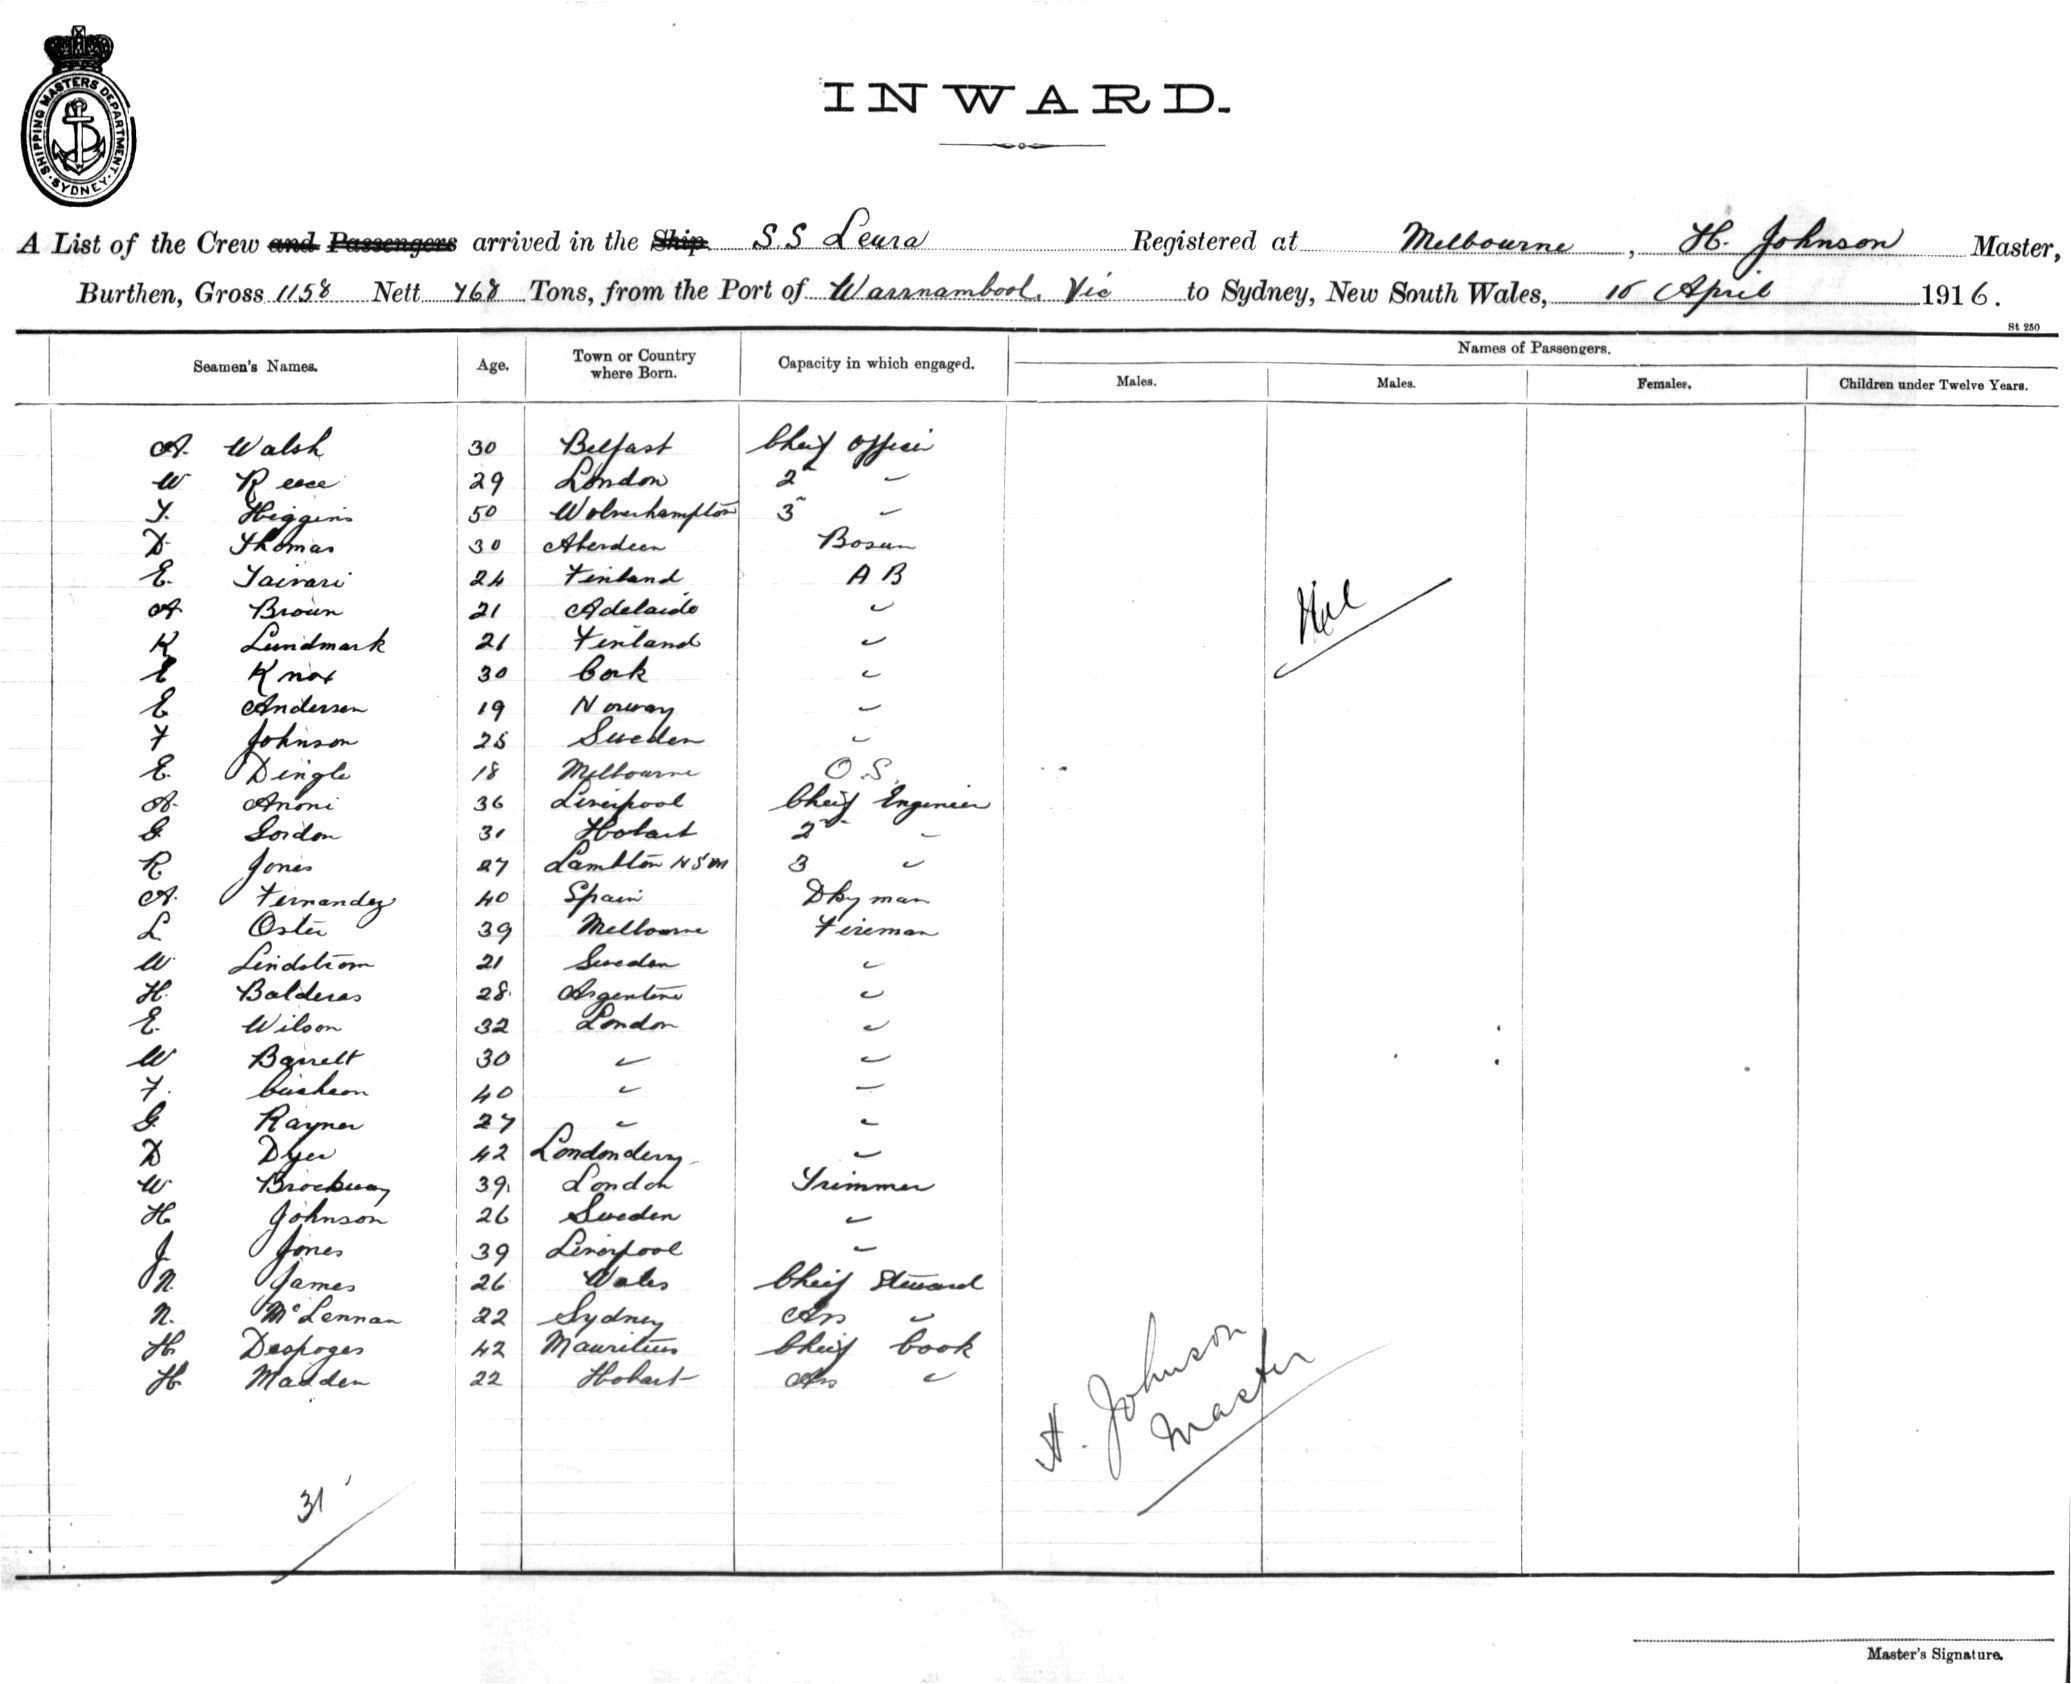 SHIPPING MASTERS DEPARTMENT
SYDNEY
INWARD.
A List of the Crew and Passengers arrived in the Ship S.S Leura Registered at Melbourne, H. Johnson Master,
Burthen, Gross 1158 Nett 768 Tons, from the Port of Warrnambool. Vic to Sydney, New South Wales, April 1916.
St 250
Seamen's Names. Age. Town or Country where Born. Capacity in which engaged. Names of Passengers.
Males. Males. Females. Children under Twelve Years.
A. Walsh 30 Belfast Cheif Officer
W Reece 29 London 2 "
T. Higgins 50 Wolverhampton 3 "
D. Thomas 30 Aberdeen Bosun
E. Taivari 24 Finland A B
A Brown 21 Adelaide "
K Lundmark 21 Finland "
E Knox 30 Cork "
E Andersen 19 Norway "
F Johnson 25 Sweden "
E. Dingle 18 Melbourne O.S.
A. Anoni 36 Liverpool Cheif Engineer
G. Gordon 31 Hobart 2 "
R Jones 27 Lambton NSW 3 "
A. Fernandez 40 Spain Dky man
L Oster 39 Melbourne Fireman
W. Lindstrom 21 Sweden "
H. Balderas 28 Argentine "
E. Wilson 32 London "
W Barrett 30 " "
F. 40 " "
G. Rayner 27 " "
D Dyer 42 Londonderry "
W Brockway 39 London Trimmer
H. Johnson 26 Sweden "
J Jones 39 Liverpool "
N. James 26 Wales Cheif Steward
N. McLennan 22 Sydney Ass "
H. Desproges 42 Mauritius Cheif Cook
H. Madden 22 Hobart Ass "
Nil
H. Johnson
Master
31
Master's Signature.